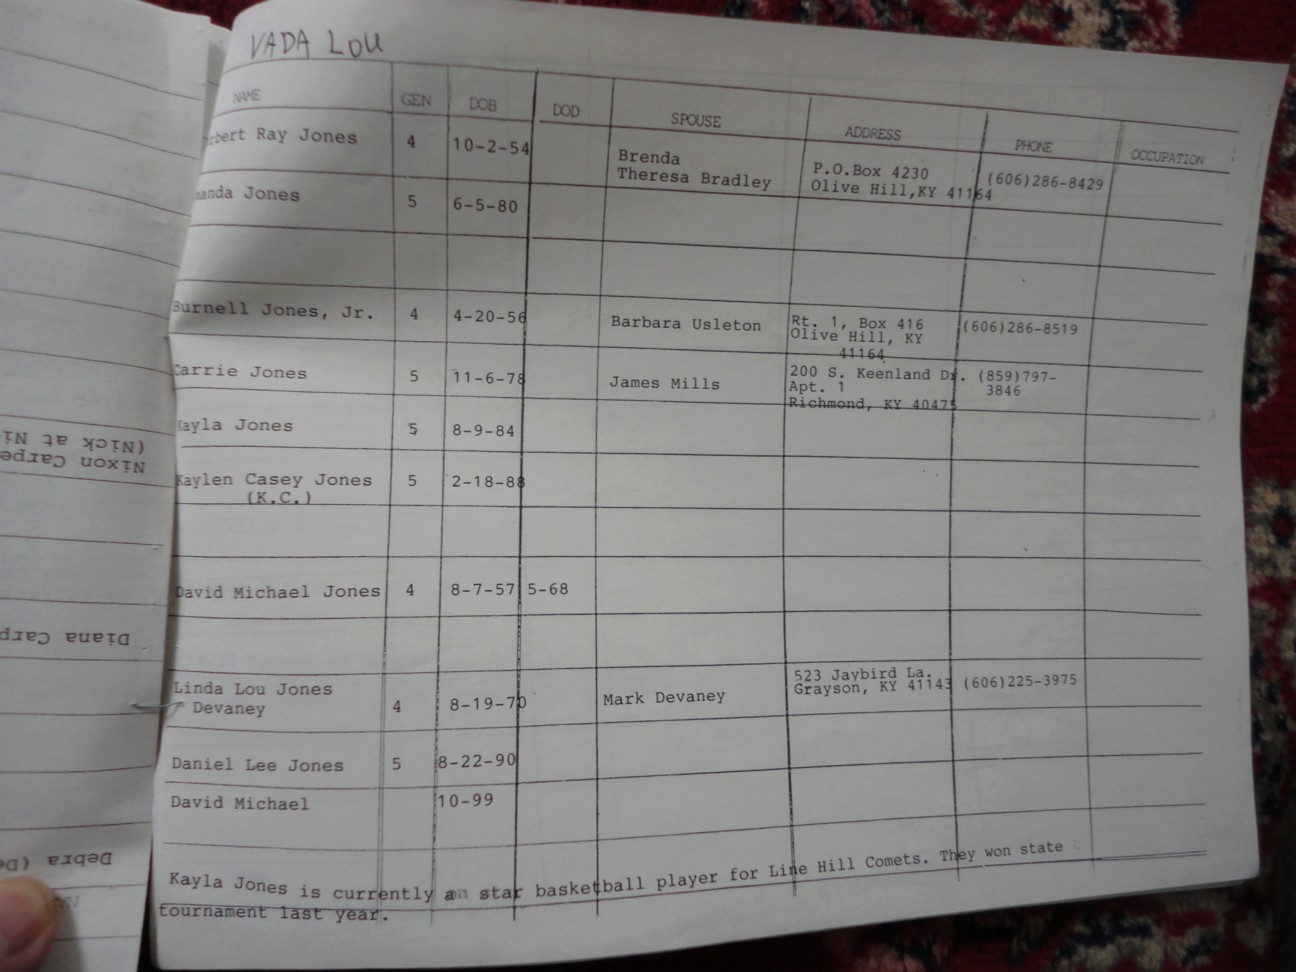 VADA LOU
NAME GEN DOB DOD SPOUSE ADDRESS PHONE OCCUPATION
rbert Ray Jones 4 10-2-54 Brenda P.O.Box 4230 (606)286-8429
Theresa Bradley Olive Hill,KY 41164
anda Jones 5 6-5-80
Burnell Jones, Jr. 4 4-20-56 Barbara Usleton Rt. 1, Box 416 (606)286-8519
Olive Hill, KY
41164
Carrie Jones 5 11-6-78 James Mills 200 S. Keenland Dr. (859)797-
Apt. 1 3846
Richmond, KY 40475
ayla Jones 5 8-9-84
Kaylen Casey Jones 5 2-18-88
(K.C.)
David Michael Jones 4 8-7-57 5-68
Linda Lou Jones 523 Jaybird La.
Devaney 4 8-19-70 Mark Devaney Grayson, KY 41143 (606)225-3975
Daniel Lee Jones 5 8-22-90
David Michael 10-99
Kayla Jones is currently an star basketball player for Line Hill Comets. They won state
tournament last year.
(Nick at Ni
Nixon Carpe
Diana Carp
Debra (De